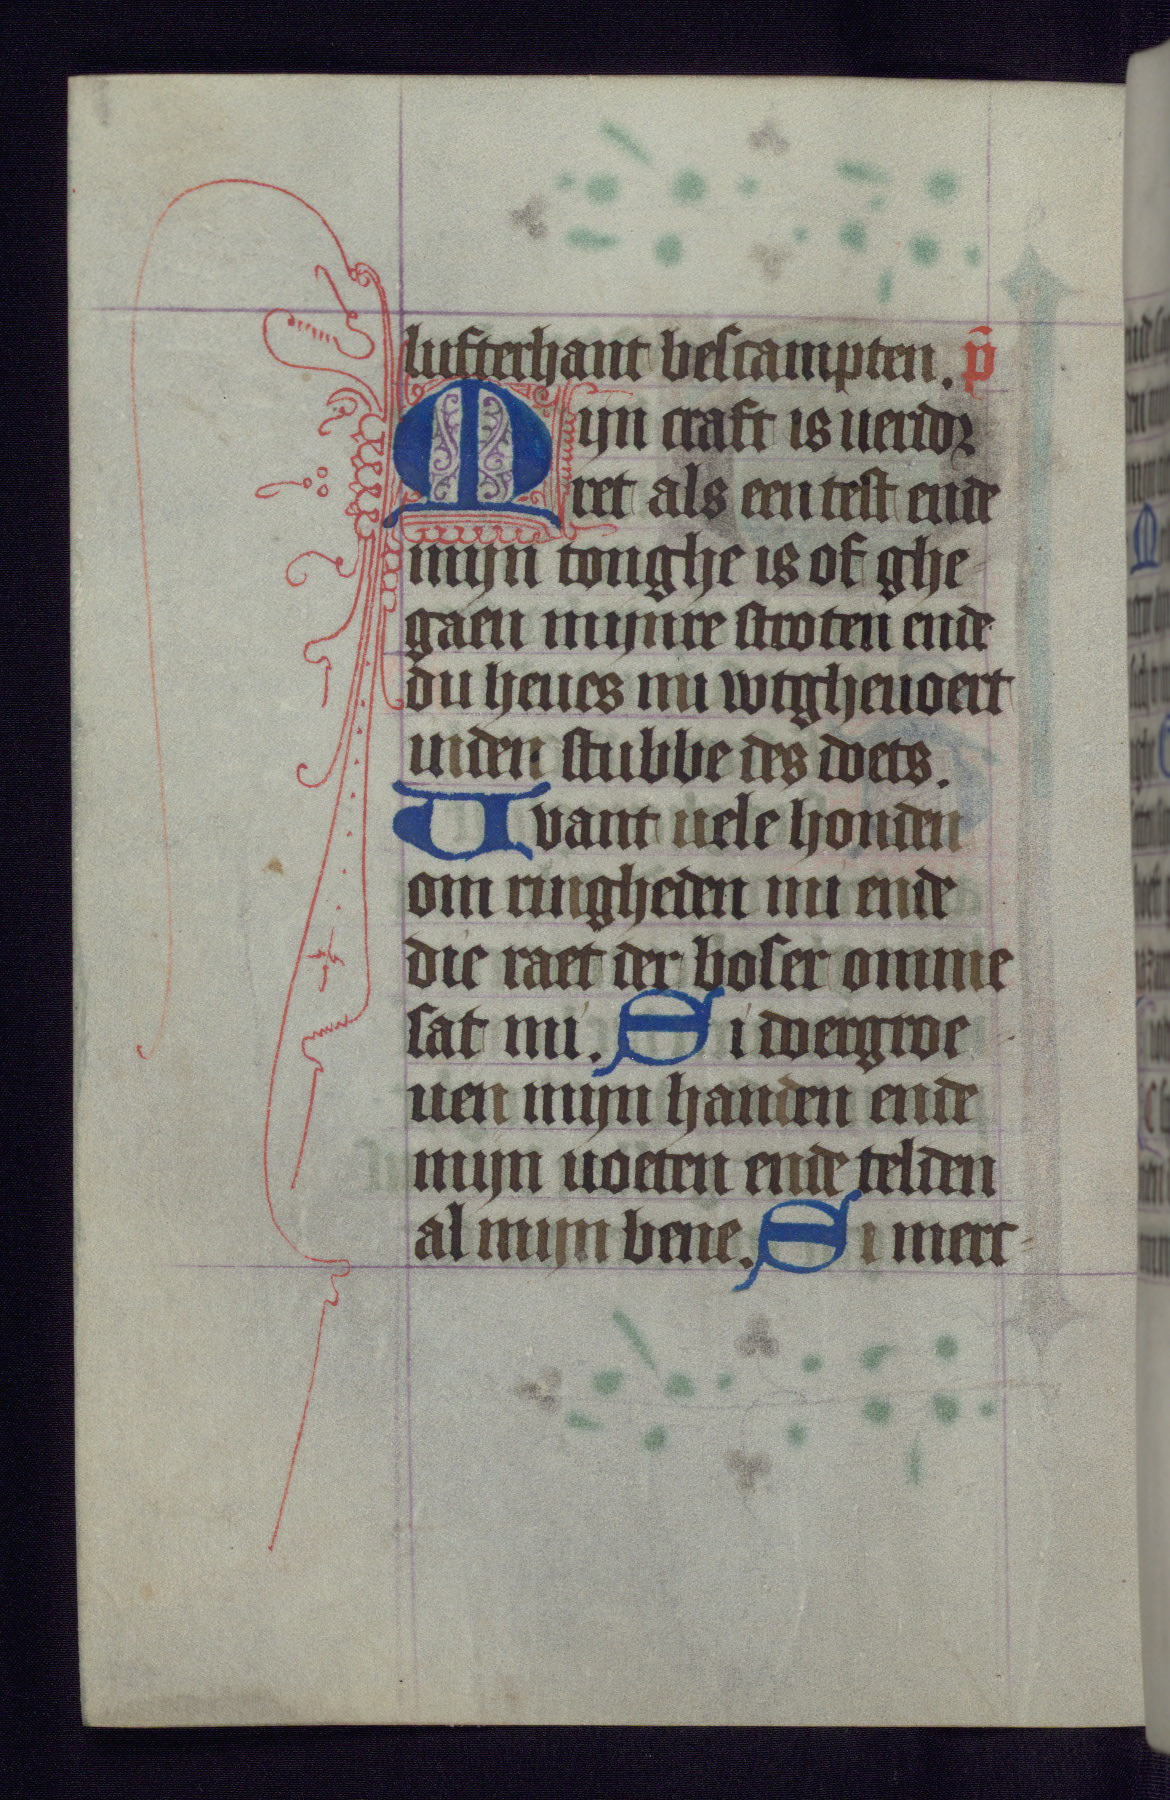 lufterhant bescampten. p̄
Mijn craft is uerdor
ret als een test ende
mijn tonghe is of ghe
gaen mijnre stroten ende
du heues mi wtgheuoert
inden stubbe des doets.
Want uele honden
om ringheden mi ende
die raet der boser omme
sat mi. Si doergroe
uen mijn handen ende
mijn uoeten ende telden
al mijn bene. Si merc